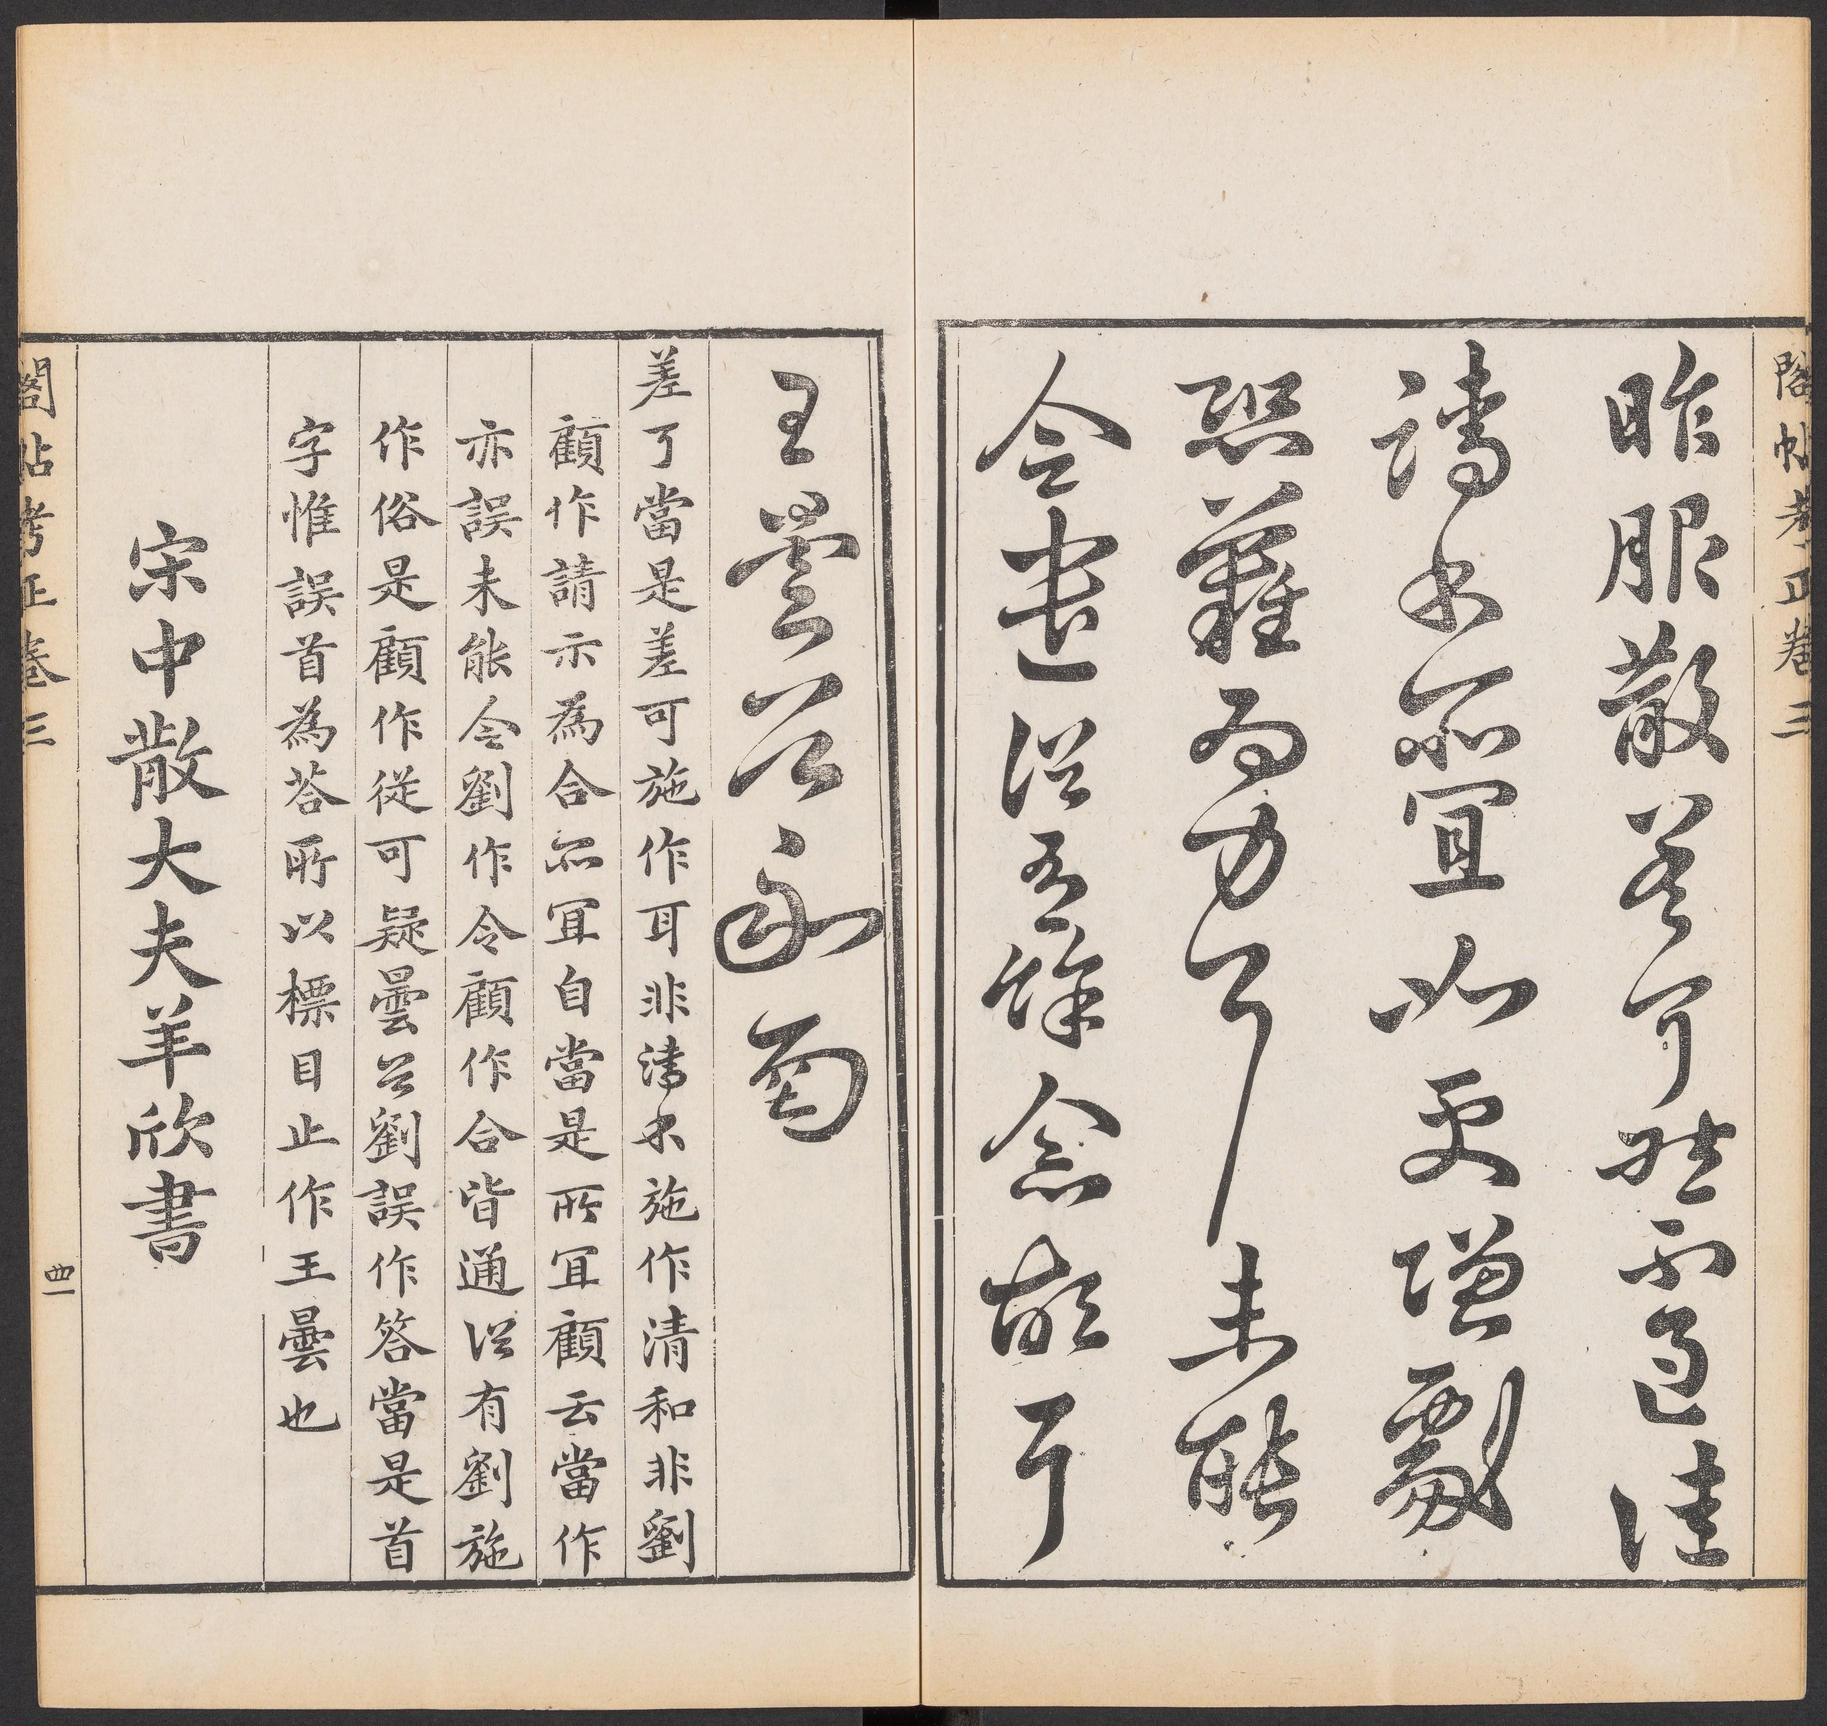 閣帖考正卷三
昨服散差可然不過佳
請書所宜以更增劇
恐難為力耳未能
令遣從吾條念故耳
王曇首永圅
差了當是差可施作耳非請書施作清和非劉
顧作請示為合所宜自當是所宜顧云當作
亦誤未能令劉作令顧作合皆通從有劉施
作俗是顧作從可疑曇首劉誤作答當是首
字惟誤首為答所以標目止作王曇也
宋中散大夫羊欣書
閣帖考正卷三
四一